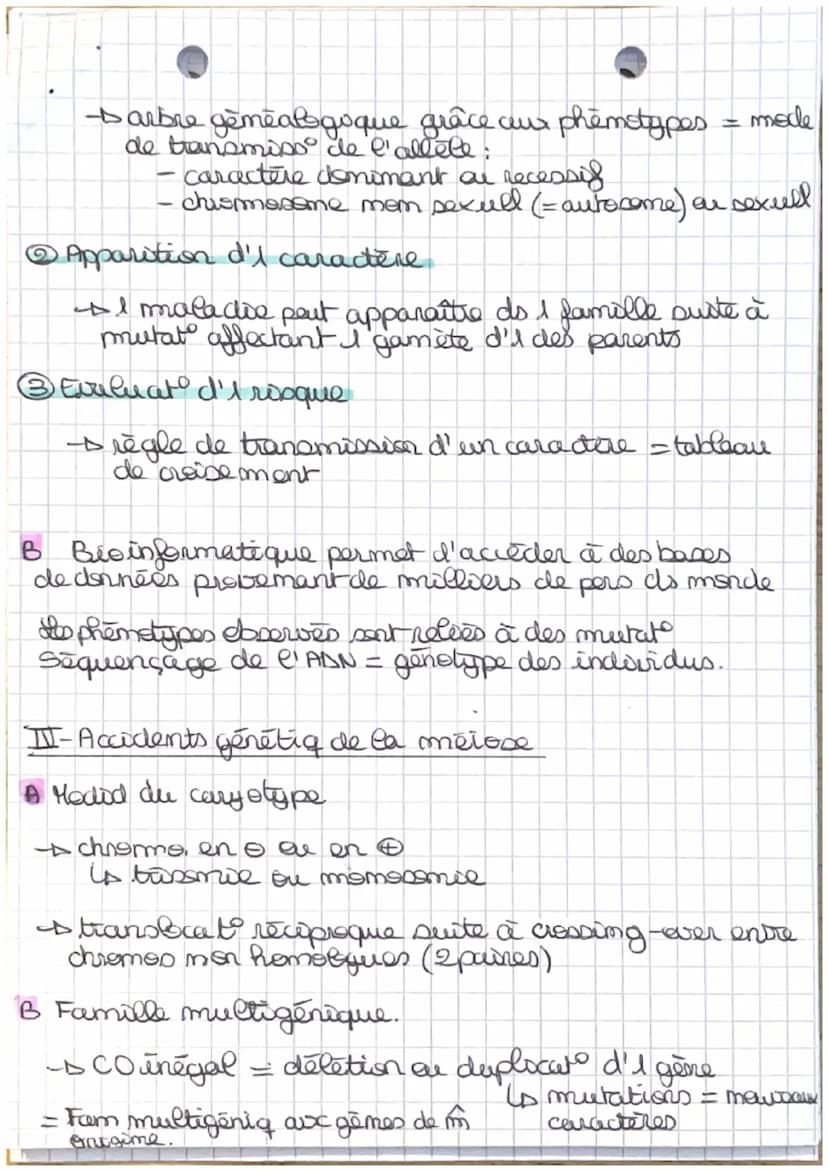 → arbre généalogoque grâce aux phénotypes = mode
de transmiss° de l'allèle :
- caractère dominant ou recessif
- chromosome non sexuel (= autosome) ou sexuel
② Apparition d'1 caractère
→ 1 maladie peut apparaître ds 1 famille suite à
mutat° affectant 1 gamète d'1 des parents
③ Evaluat° d'1 risque
→ règle de transmission d'un caractère = tableau
de croisement
B Bioinformatique permet d'accéder à des bases
de données provenant de milliers de pers ds monde
Les phénotypes observés sont reliés à des mutat°
Séquençage de l'ADN = génotype des individus.
III - Accidents génétiq de la méiose
A Modif du caryotype
→ chromo. en ⊖ ou en ⊕
↳ trisomie ou monosomie
→ translocat° réciproque suite à crossing-over entre
chromos non homologues (2 paires)
B Famille multigénique.
→ CO inégal = délétion ou duplicat° d'1 gène
↳ mutations = nouveaux
caractères
= Fam multigéniq avc gènes de m̂
origine.